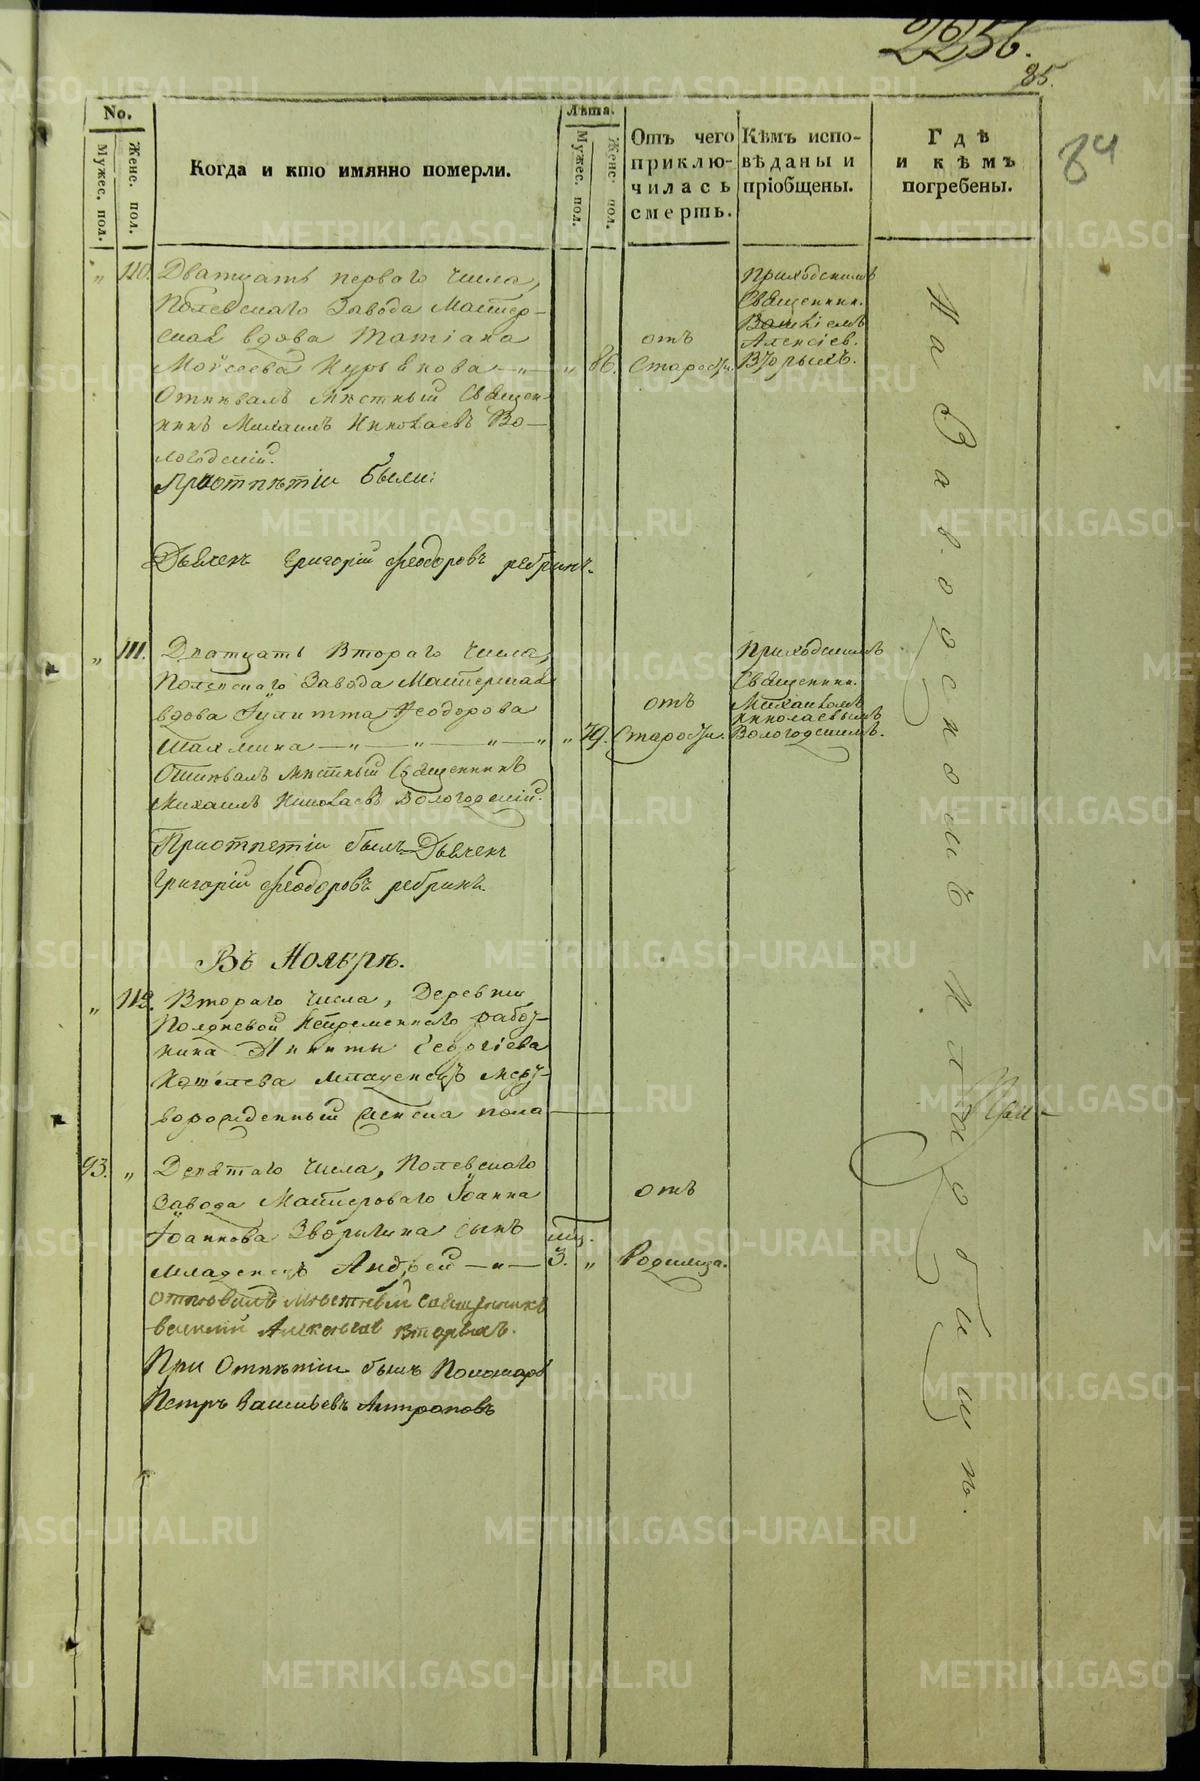 2256.
85.
84
No.
Мужес. пол.
Женс. пол.
Когда и кто имянно померли.
Лѣта.
Мужес. пол.
Женс. пол.
Отъ чего
приклю-
чилась
смерть.
Кѣмъ испо-
вѣданы и
пріобщены.
Гдѣ
и кѣмъ
погребены.
„ 110. Дватцать перваго числа,
Полевскаго Завода Мастер-
ская вдова Татіана
Моѵсеева —„— „ 86.
Отпѣвалъ Мѣстный Священ-
никъ Михаилъ Николаевъ Во-
логодскій.
При отпѣтіи были:
Дьячекъ Григорій Феодоровъ Ребринъ.
отъ
Старости.
Приходскимъ
Священник.
Василіемъ
Алексіев.
Вторыхъ.
„ 111. Дватцать Втораго числа,
Полевскаго Завода Мастерская
вдова Іулитта Феодорова
—„—„—„—„ „ 79.
Отпѣвалъ Мѣстный Священникъ
Михаилъ Николаевъ Вологодскій.
При отпетіи былъ Дьячекъ
Григорій Феодоровъ Ребринъ.
отъ
Старости.
Приходскимъ
Священник.
Михаиломъ
Николаевымъ
Вологодскимъ.
Въ Ноябрѣ.
„ 112. Втораго числа, Деревни
Полдневой Непременнаго работ-
ника Никиты Георгіева
младенецъ мерт-
ворожденный женска пола
93. „ Девятаго числа, Полевскаго
Завода Мастероваго Іоанна
Іоаннова Зворыгина сынъ
младенецъ Андрей —„—
мц.
3. „
отъ
Родимца.
отпѣвалъ Мѣстный священникъ
василій Алексѣевъ Вторыхъ.
При Отпѣтіи былъ Пономарь
Петръ Васильевъ Антроповъ
На Заводскомъ Кладбищѣ.
METRIKI.GASO-URAL.RU